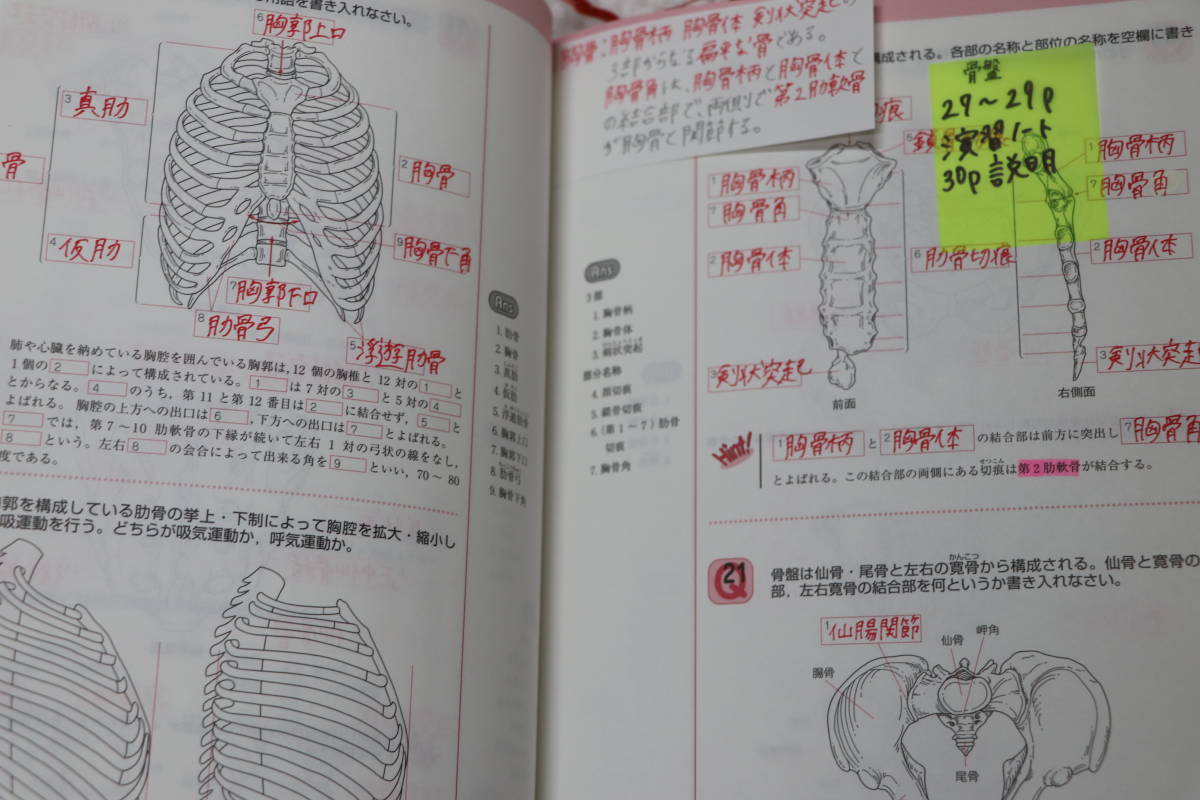 用語を書き入れなさい。
6 胸郭上口
3 真肋
骨
2 胸骨
4 仮肋
9 胸骨下角
7 胸郭下口
8 肋骨弓
5 浮遊肋骨
肺や心臓を納めている胸腔を囲んでいる胸郭は,12 個の胸椎と 12 対の 1 と
1 個の 2 によって構成されている。 1 は 7 対の 3 と 5 対の 4
とからなる。 4 のうち,第 11 と第 12 番目は 2 に結合せず, 5 と
よばれる。 胸腔の上方への出口は 6 ,下方への出口は 7 とよばれる。
7 では,第 7〜10 肋軟骨の下縁が続いて左右 1 対の弓状の線をなし,
8 という。左右 8 の会合によって出来る角を 9 といい,70〜80
度である。
郭を構成している肋骨の挙上・下制によって胸腔を拡大・縮小し
吸運動を行う。どちらが吸気運動か,呼気運動か。
Ans
1. 肋骨
2. 胸骨
3. 真肋
4. 仮肋
5. 浮遊肋骨
6. 胸郭上口
7. 胸郭下口
8. 肋骨弓
9. 胸骨下角
胸骨:胸骨柄 胸骨体 剣状突起の
3部からなる扁平な骨である。
胸骨角は、胸骨柄と胸骨体と
の結合部で、両側で第2肋軟骨
が胸骨と関節する。
構成される。各部の名称と部位の名称を空欄に書き
骨盤
27〜29p
演習ノート
30p 説明
痕
5 鎖
1 胸骨柄
7 胸骨角
2 胸骨体
6 肋骨切痕
3 剣状突起
前面
1 胸骨柄
7 胸骨角
2 胸骨体
3 剣状突起
右側面
Ans
3部
1. 胸骨柄
2. 胸骨体
3. 剣状突起
部分名称
4. 頚切痕
5. 鎖骨切痕
6. (第 1〜7) 肋骨
切痕
7. 胸骨角
Hint!
1 胸骨柄 と 2 胸骨体 の結合部は前方に突出し 7 胸骨角
とよばれる。この結合部の両側にある切痕は第 2 肋軟骨が結合する。
せっこん
Q 21
かんこつ
骨盤は仙骨・尾骨と左右の寛骨から構成される。仙骨と寛骨の
部,左右寛骨の結合部を何というか書き入れなさい。
1 仙腸関節
仙骨
岬角
腸骨
尾骨